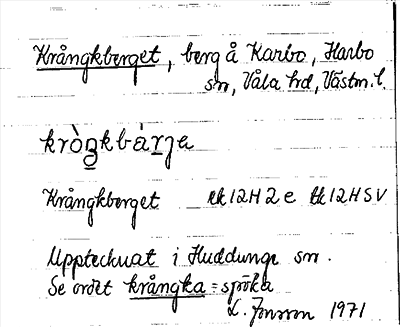 Krångkberget, berg å Karbo, Harbo
sn, Våla hd, Västm. l.
kròŋkbàrja
Krångkberget ek 12H2e tk 12HSV
Upptecknat i Huddunge sn.
Se ordet krångka = spöka
L. Jonsson 1971